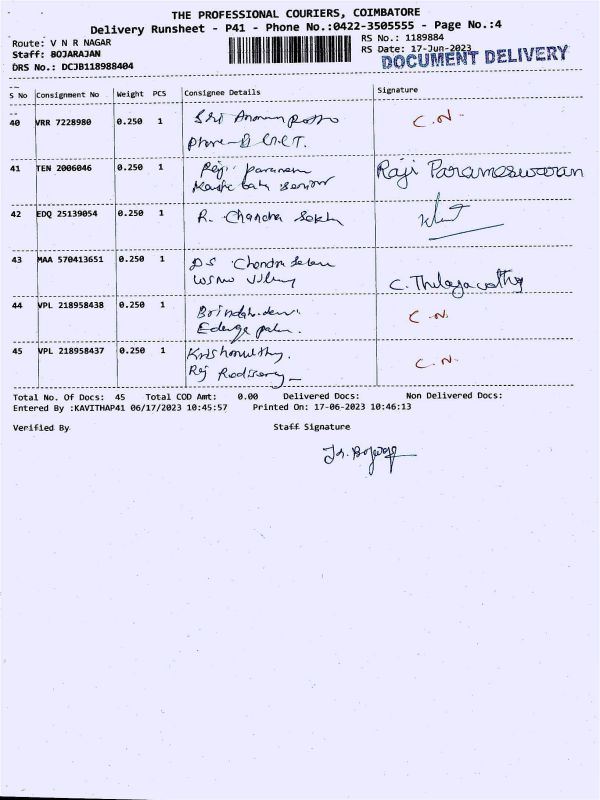 THE PROFESSIONAL COURIERS, COIMBATORE
Delivery Runsheet - P41 - Phone No.:0422-3505555 - Page No.:4
Route: V N R NAGAR
RS No.: 1189884
Staff: BOJARAJAN
RS Date: 17-Jun-2023
DOCUMENT DELIVERY
DRS No.: DCJB118988404
S No Consignment No Weight PCS Consignee Details Signature
40 VRR 7228980 0.250 1 Sri C.N.
41 TEN 2006046 0.250 1 Raji Raji Parameswaran
42 EDQ 25139054 0.250 1 R. Chandra
43 MAA 570413651 0.250 1 DS Chandra
C. Thilagavathy
44 VPL 218958438 0.250 1 C.N.
45 VPL 218958437 0.250 1 C.N.
Total No. Of Docs: 45 Total COD Amt: 0.00 Delivered Docs: Non Delivered Docs:
Entered By :KAVITHAP41 06/17/2023 10:45:57 Printed On: 17-06-2023 10:46:13
Verified By Staff Signature